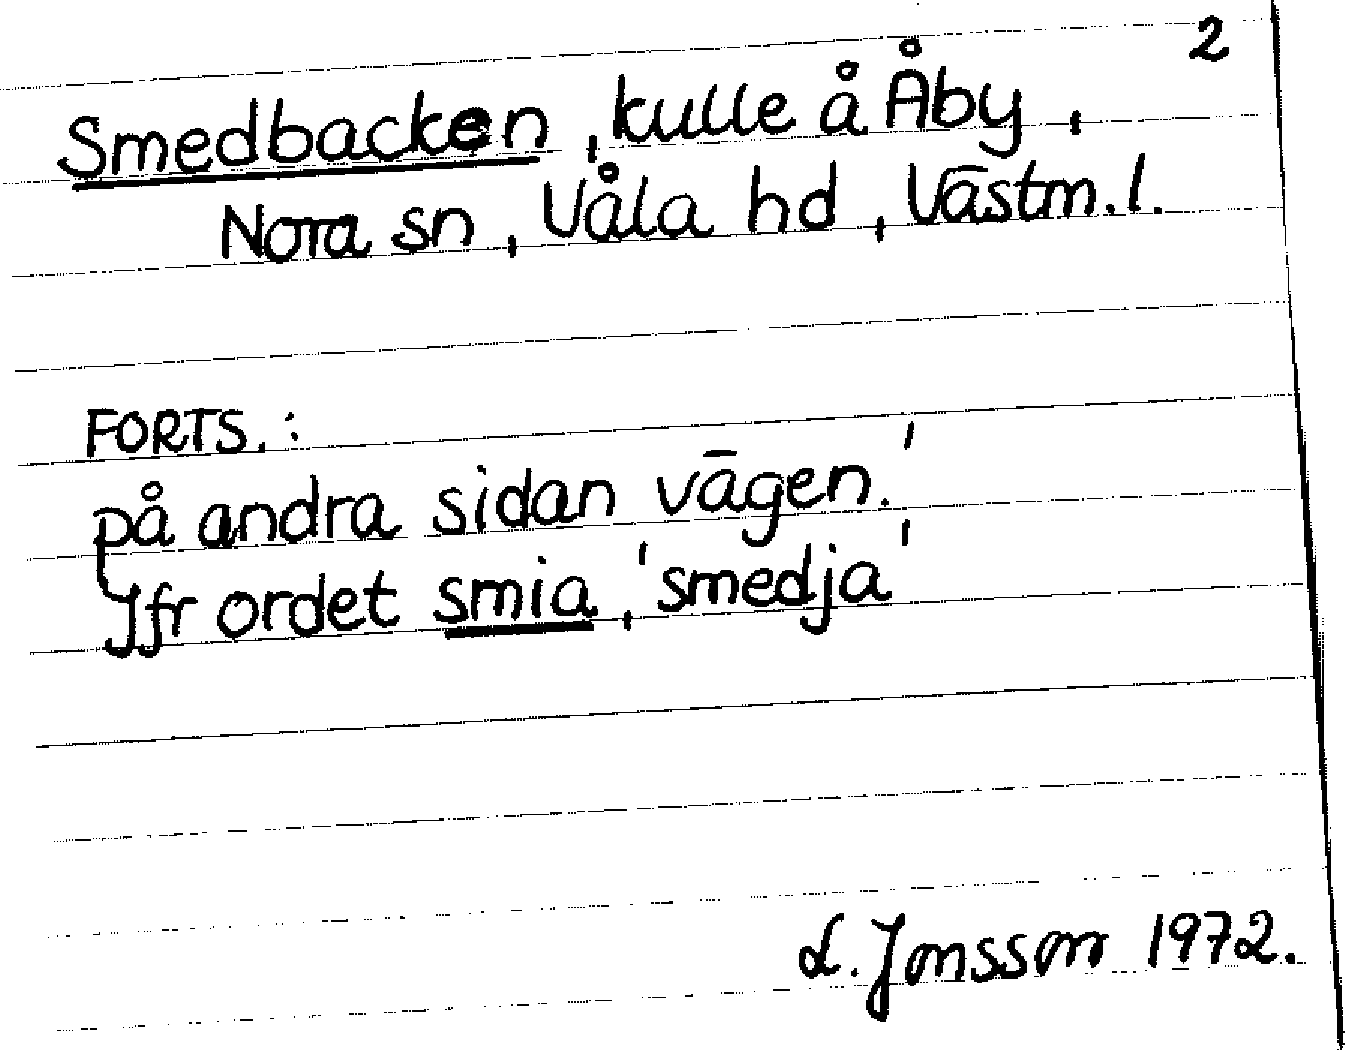 2
Smedbacken, kulle å Åby,
Nora sn, Våla hd, Västm.l.
FORTS.:
på andra sidan vägen.'
Jfr ordet smia, 'smedja'
L. Jonsson 1972.